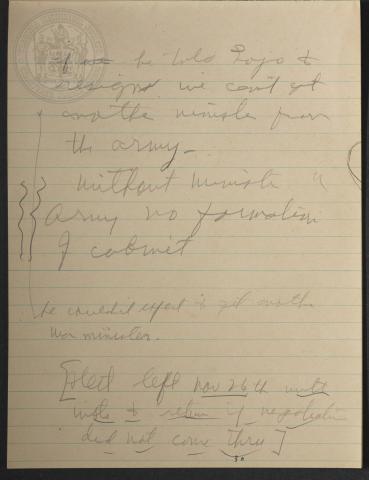 he told Tojo to
resign we can't get
another minister from
the army -
Without Minister "
Army no formation
of cabinet
he couldn't expect to get another
War minister.
[fleet left Nov 26th with
to return if negotiation
did not come thru]